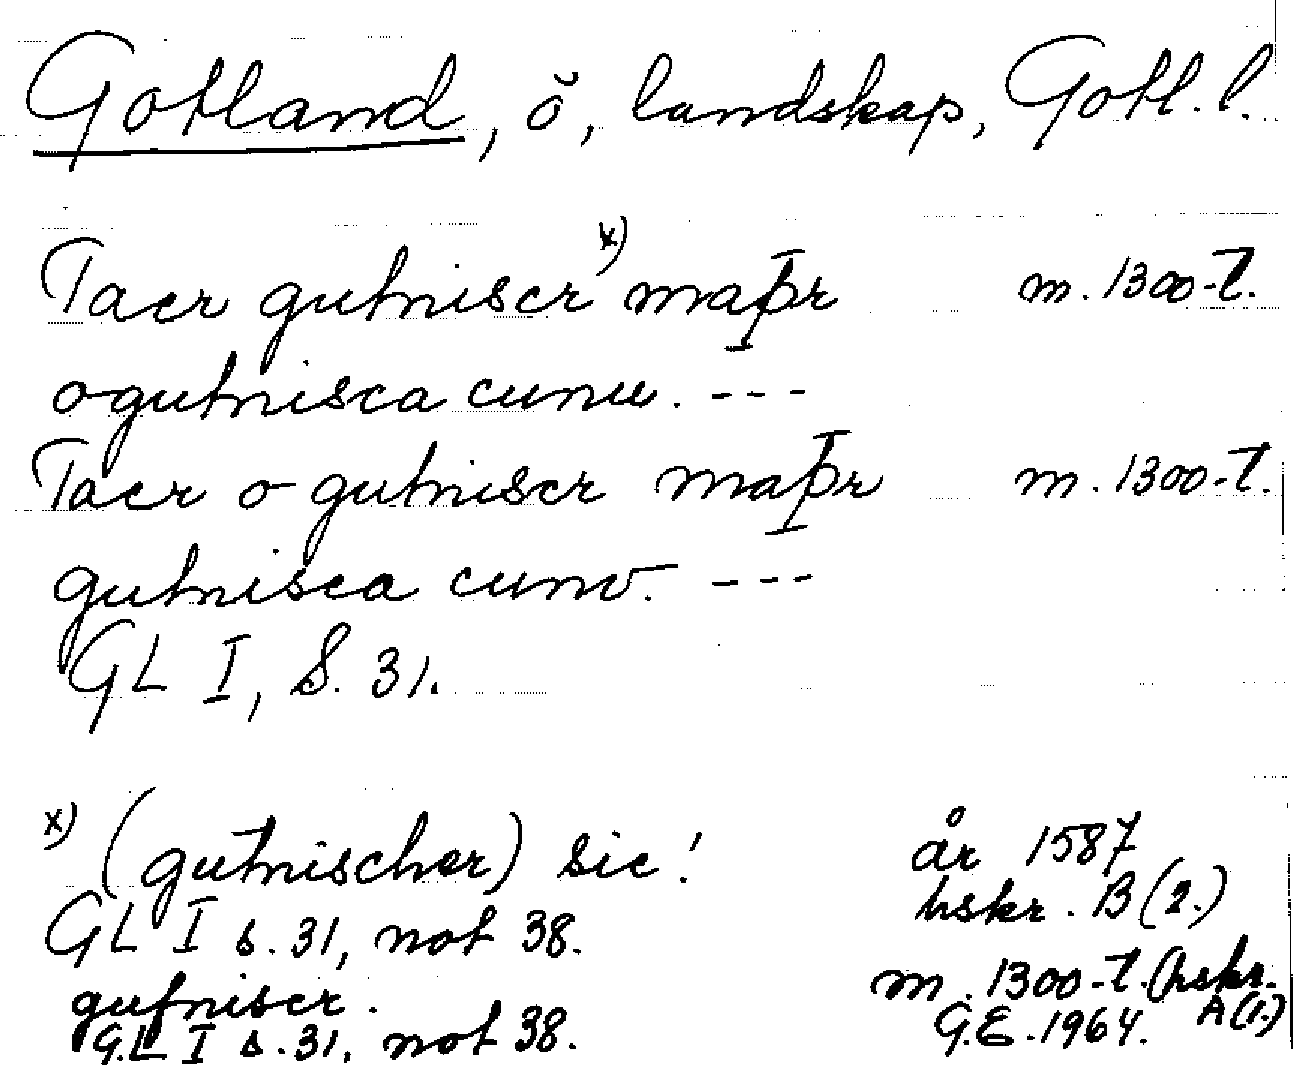 Gotland, ö, landskap, Gotl. l.
Taer gutniscr x) maþr m. 1300-t.
ogutnisca cunu. ---
Taer ogutniscr maþr m. 1300-t.
gutnisca cunv. ---
GL I, S. 31.
x) (gutnischer) sic! år 1587
GL I s. 31, not 38. hskr. B (2.)
gutniscr. m. 1300-t. (hskr. A (1.)
GL I s. 31, not 38. G.E. 1964.